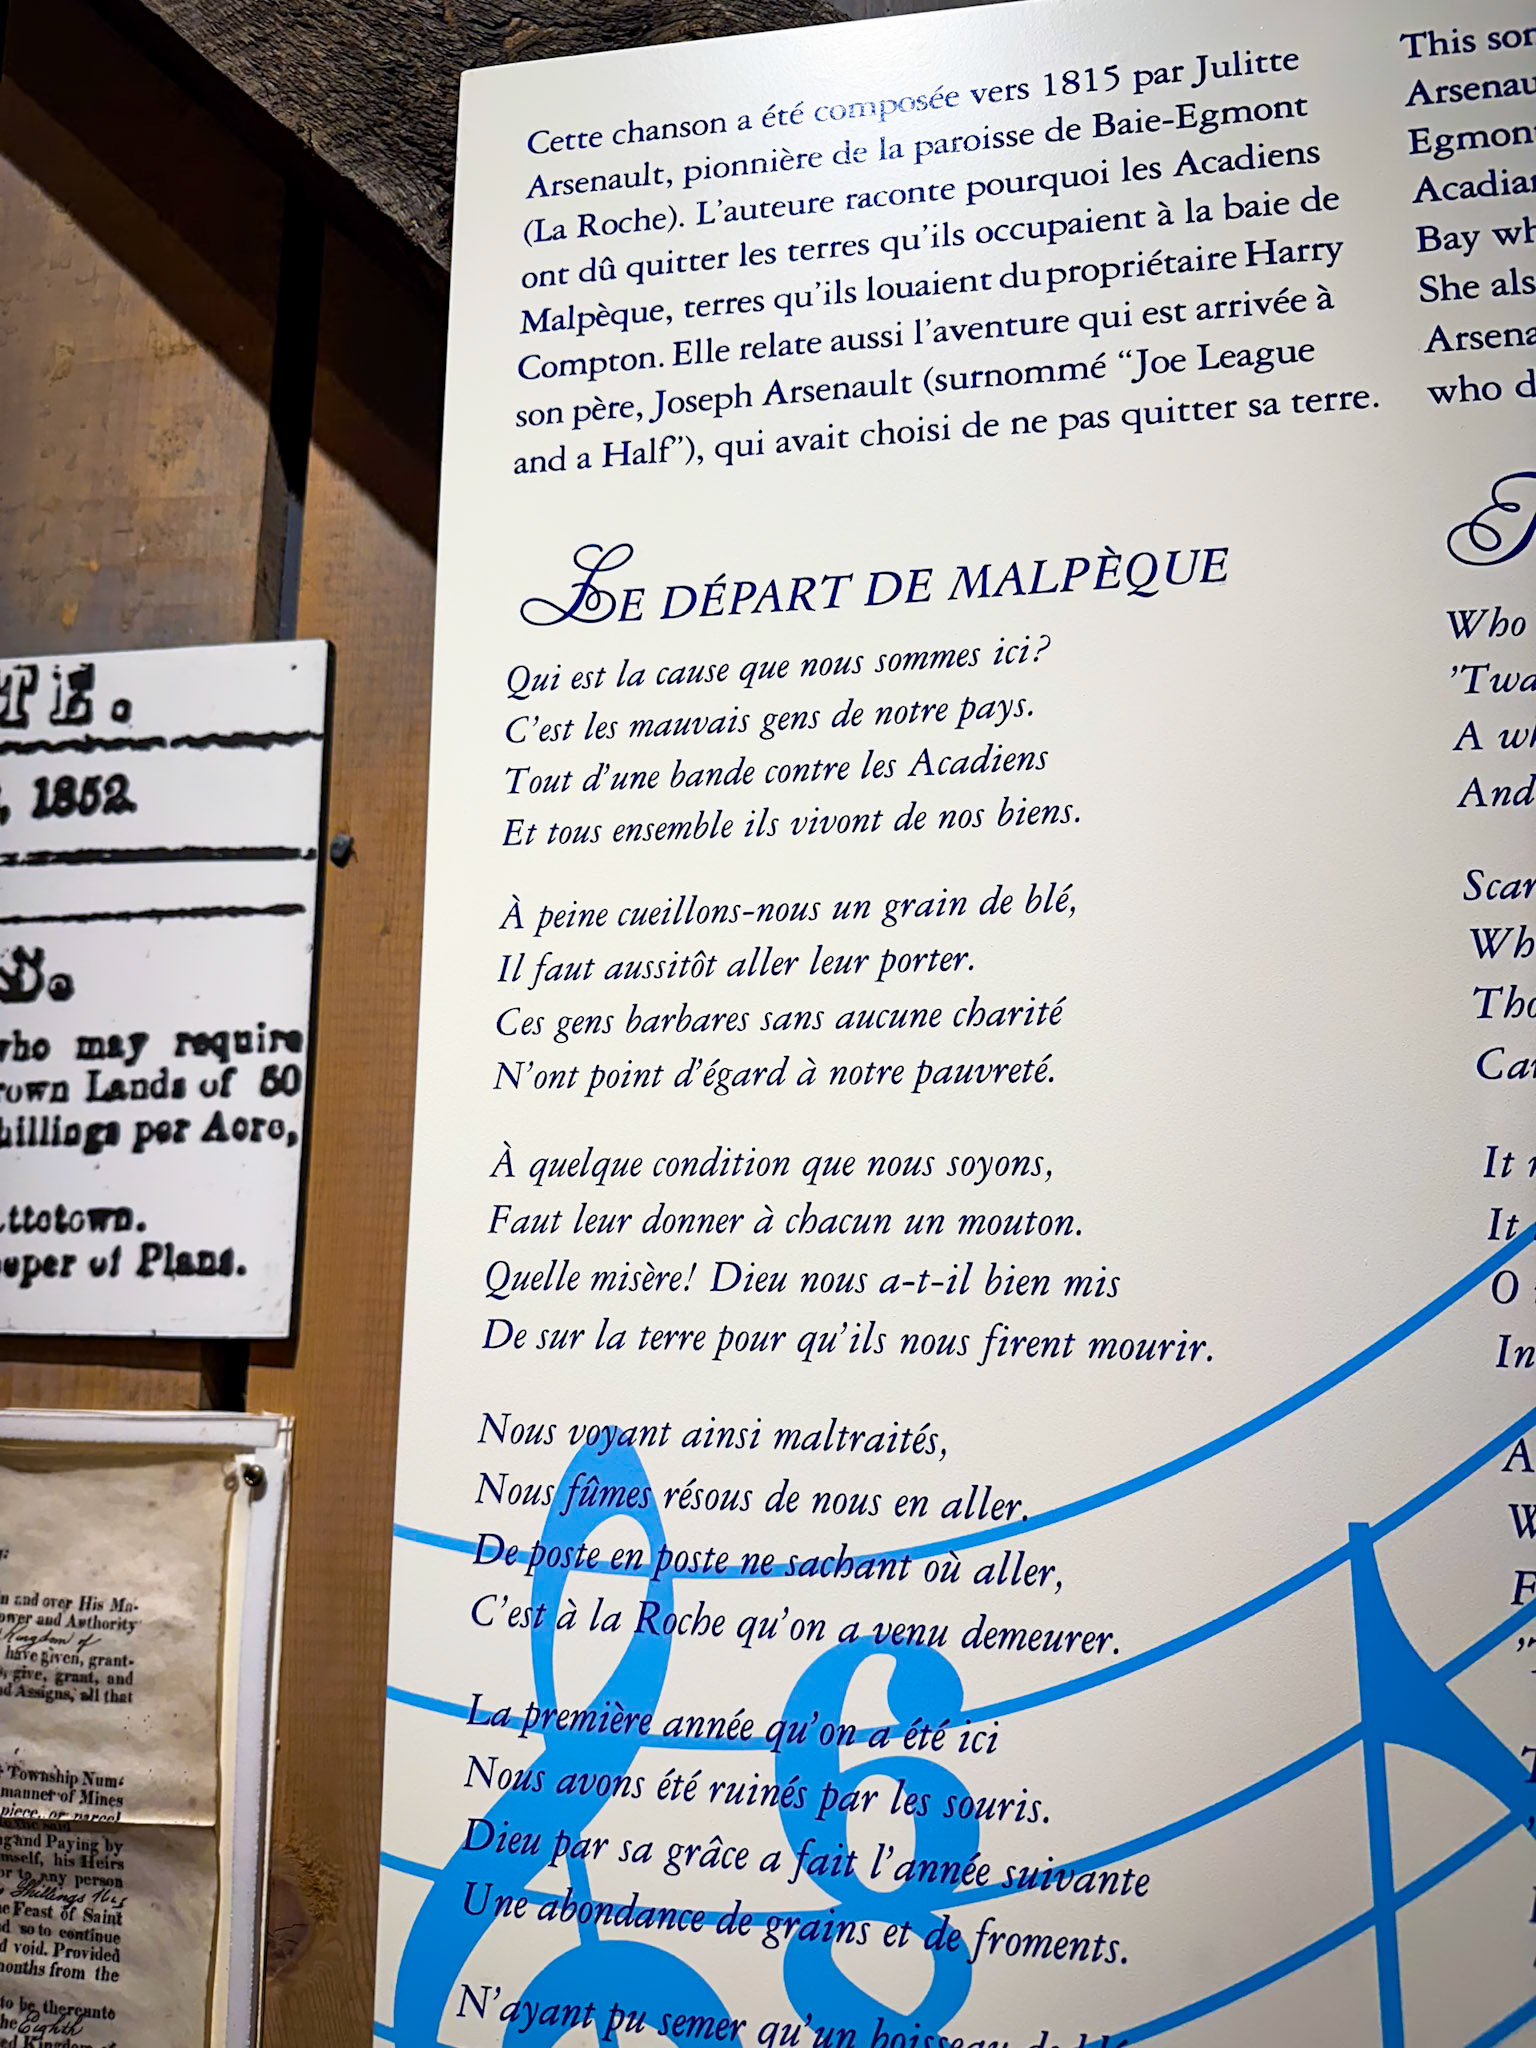 Cette chanson a été composée vers 1815 par Julitte
Arsenault, pionnière de la paroisse de Baie-Egmont
(La Roche). L'auteure raconte pourquoi les Acadiens
ont dû quitter les terres qu'ils occupaient à la baie de
Malpèque, terres qu'ils louaient du propriétaire Harry
Compton. Elle relate aussi l'aventure qui est arrivée à
son père, Joseph Arsenault (surnommé “Joe League
and a Half”), qui avait choisi de ne pas quitter sa terre.
LE DÉPART DE MALPÈQUE
Qui est la cause que nous sommes ici?
C'est les mauvais gens de notre pays.
Tout d'une bande contre les Acadiens
Et tous ensemble ils vivont de nos biens.
À peine cueillons-nous un grain de blé,
Il faut aussitôt aller leur porter.
Ces gens barbares sans aucune charité
N'ont point d'égard à notre pauvreté.
À quelque condition que nous soyons,
Faut leur donner à chacun un mouton.
Quelle misère! Dieu nous a-t-il bien mis
De sur la terre pour qu'ils nous firent mourir.
Nous voyant ainsi maltraités,
Nous fûmes résous de nous en aller.
De poste en poste ne sachant où aller,
C'est à la Roche qu'on a venu demeurer.
La première année qu'on a été ici
Nous avons été ruinés par les souris.
Dieu par sa grâce a fait l'année suivante
Une abondance de grains et de froments.
N'ayant pu semer qu'un boisseau de blé
This
Arsenau
Egmon
Acadian
Bay wh
She als
Arsena
who d
Who
'Twa
A wh
And
Scar
Wh
Tho
Car
It
It
O
In
A
W
F
TE.
, 1852
D.
who may require
rown Lands of 50
hillings per Acre,
ttetown.
eeper of Plans.
n and over His Ma-
ower and Authority
Kingdom of
have given, grant-
, give, grant, and
d Assigns, all that
Township Num-
manner of Mines
piece, or parcel
g and Paying by
mself, his Heirs
or to any person
Shillings
e Feast of Saint
d so to continue
d void. Provided
months from the
to be thereunto
he Eighth
ed Kingdom of